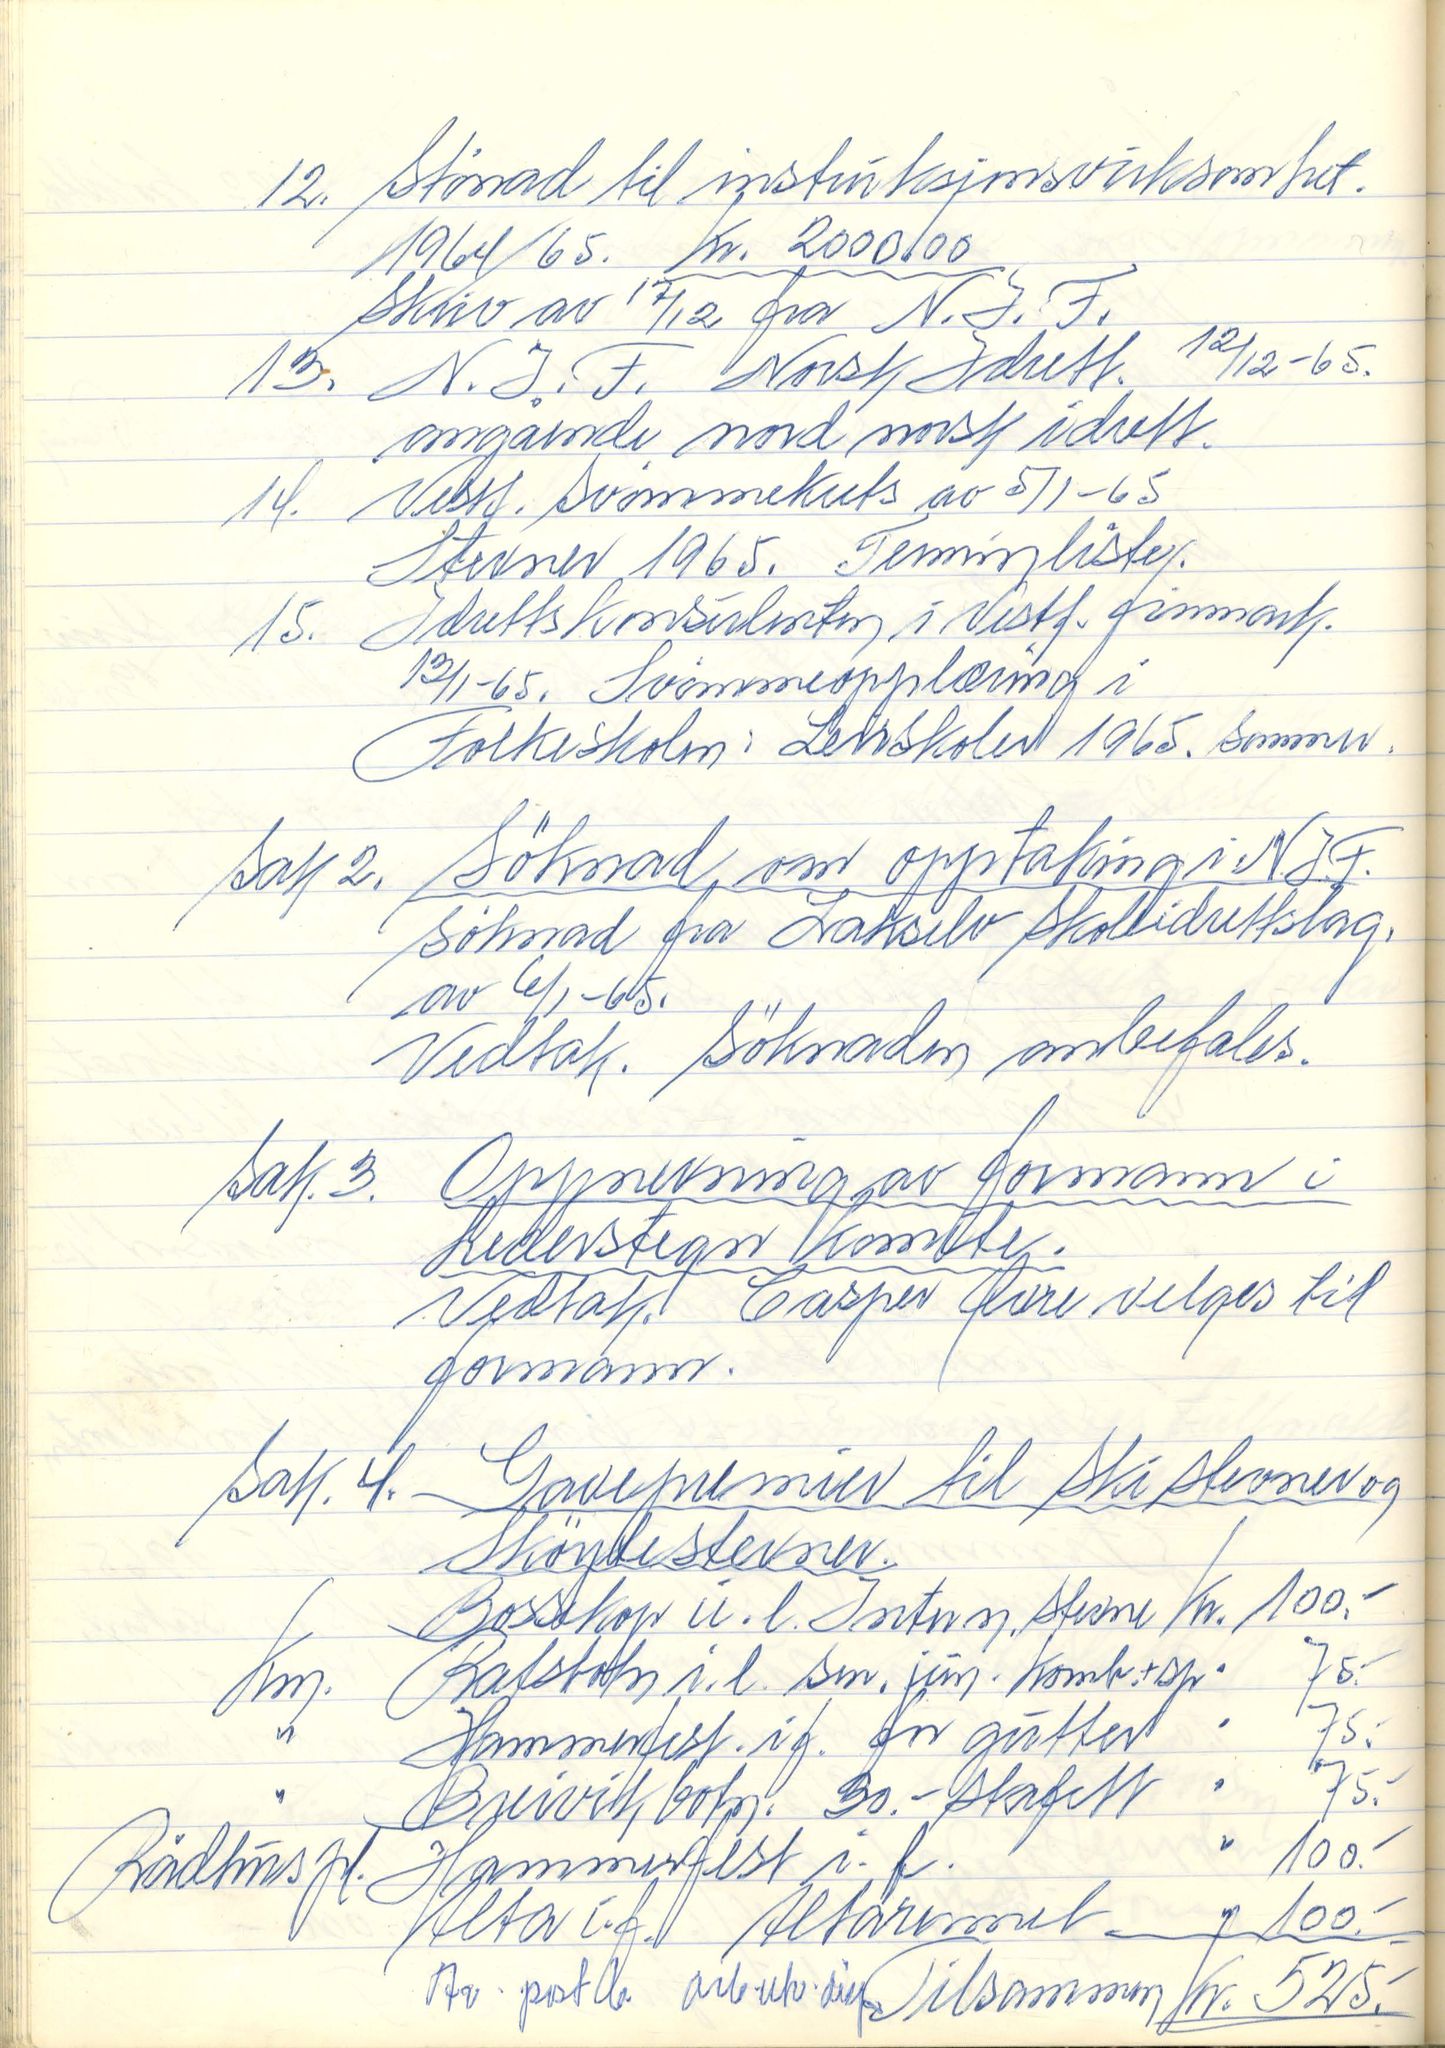 12. Stönad til instruksjonsvirksomhet.
1964/65. Kr. 2000.00
Skriv av 17/12 fra N.I.F.
13. N.I.F. Norsk Idrett. 12/12-65.
angående nord norsk idrett.
14. Vestf. Svömmekrets av 5/1-65
Stevner 1965. Terminlister.
15. Idrettskonsulenten i Vestf. finnmark.
13/1-65. Svömmeopplæring i
Folkeskolen: Leirskoler 1965. Sommer.
Sak 2. Söknad om opptaking i N.I.F.
Söknad fra Lakselv Skoleidrettslag.
av 6/1-65.
Vedtak. Söknaden anbefales.
Sak. 3. Oppnevning av formann i
Lederstegn komite.
Vedtak. Casper velges til
formann.
Sak. 4. Gavepremier til Ski stevner og
Sköytestevner.
Bossekop u.l. Intern. stevne Kr. 100.-
Km. Rafsbotn i.l. sen. jun. komb. + sp. " 75.-
" Hammerfest. i.f. for gutter " 75.-
" Breivikbotn. 30.- Stafett " 75.-
Rådhuspl. Hammerfest i.f. " 100.-
Alta i.f. Altarennet " 100.-
Av post Tilsammen Kr. 525.-